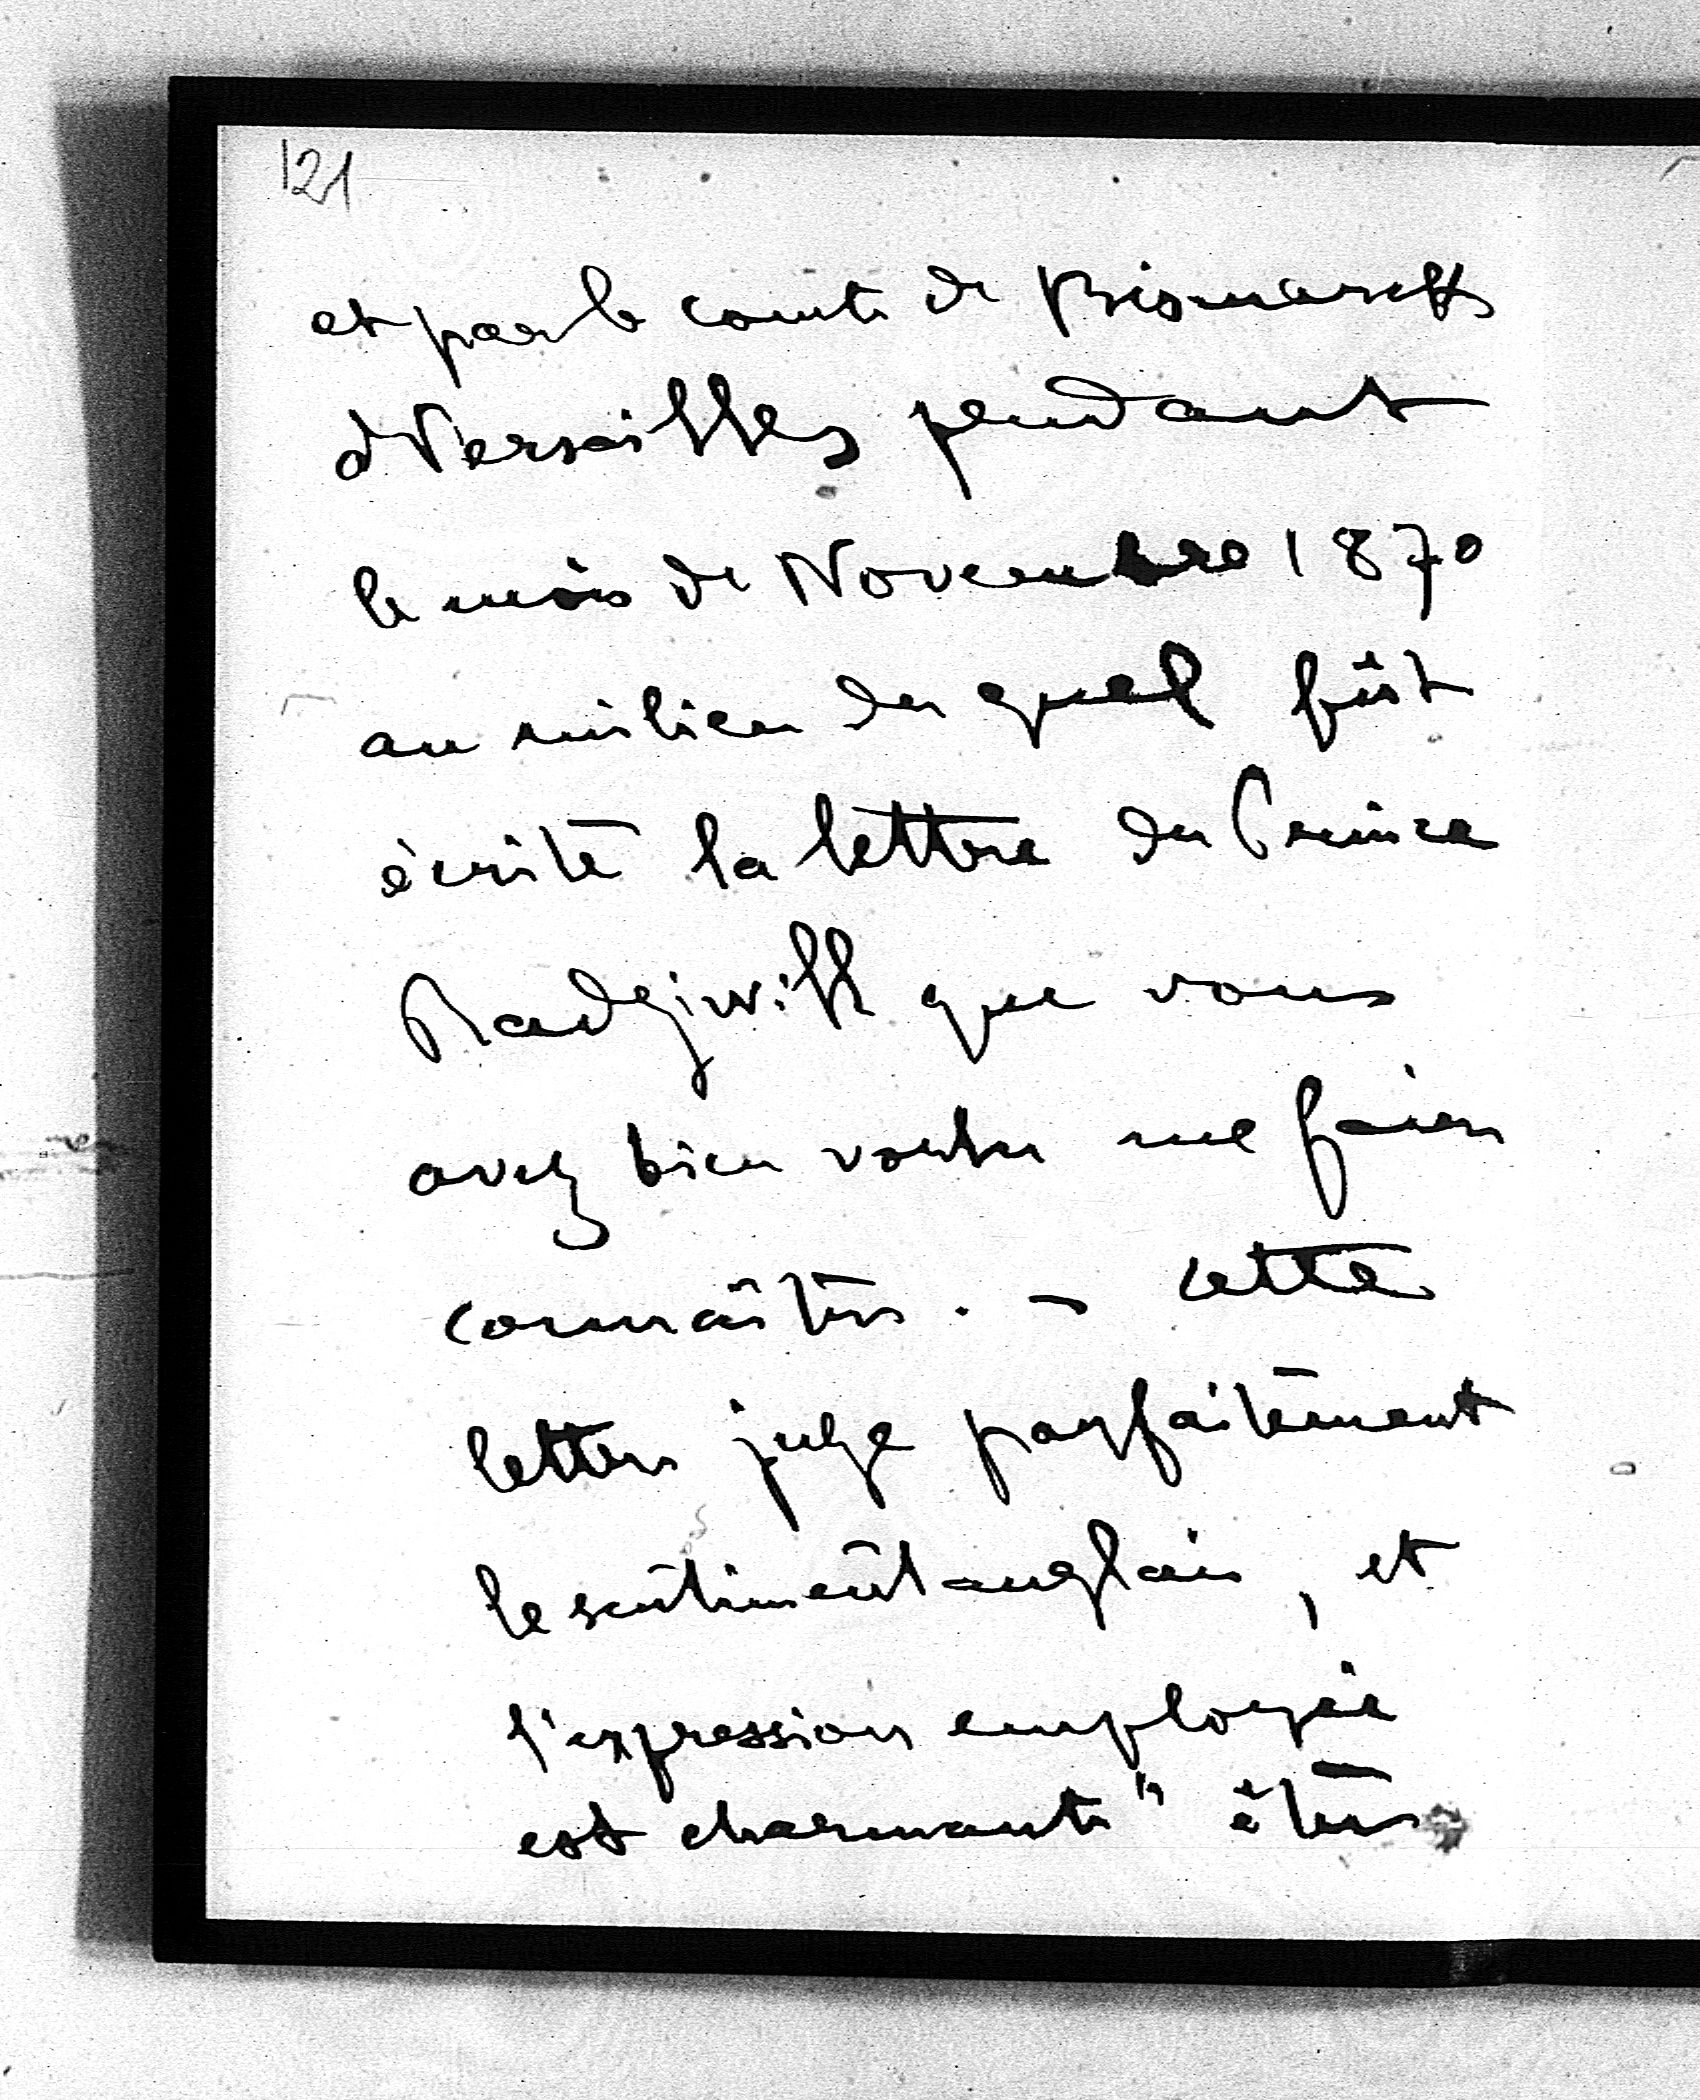 121
et par le comte de Bismarck
à Versailles pendant
le mois de Novembre 1870
au milieu du quel fût
écrite la lettre du Prince
Radziwill que vous
avez bien voulu me faire
connaître. – cette
lettre juge parfaitement
le sentiment anglais, et
l'expression employée
est charmante " être